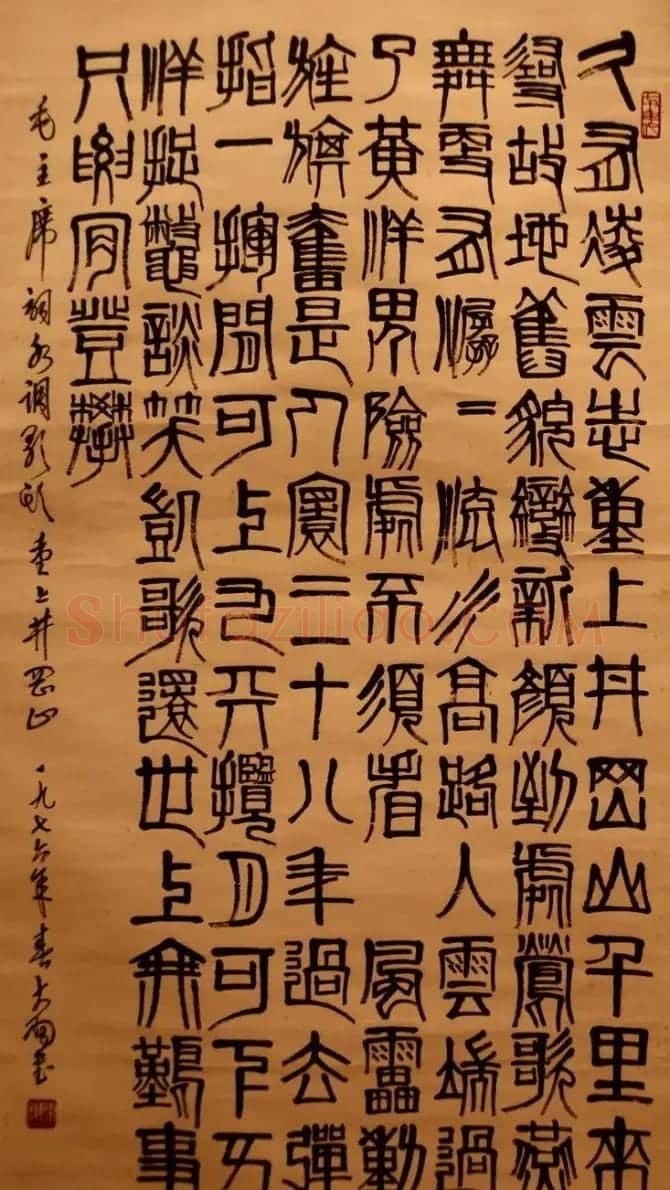 久有凌雲志重上井岡山千里來
尋故地舊貌變新顏到處鶯歌燕
舞更有潺〻流水高路入雲端過
了黃洋界險處不須看 風雷動
旌旗奮是人寰三十八年過去彈
指一揮間可上九天攬月可下五
洋捉鱉談笑凱歌還世上無難事
只要肯登攀
毛主席詞水调歌頭 重上井岡山 一九七六年春
Shufaziliao.COM